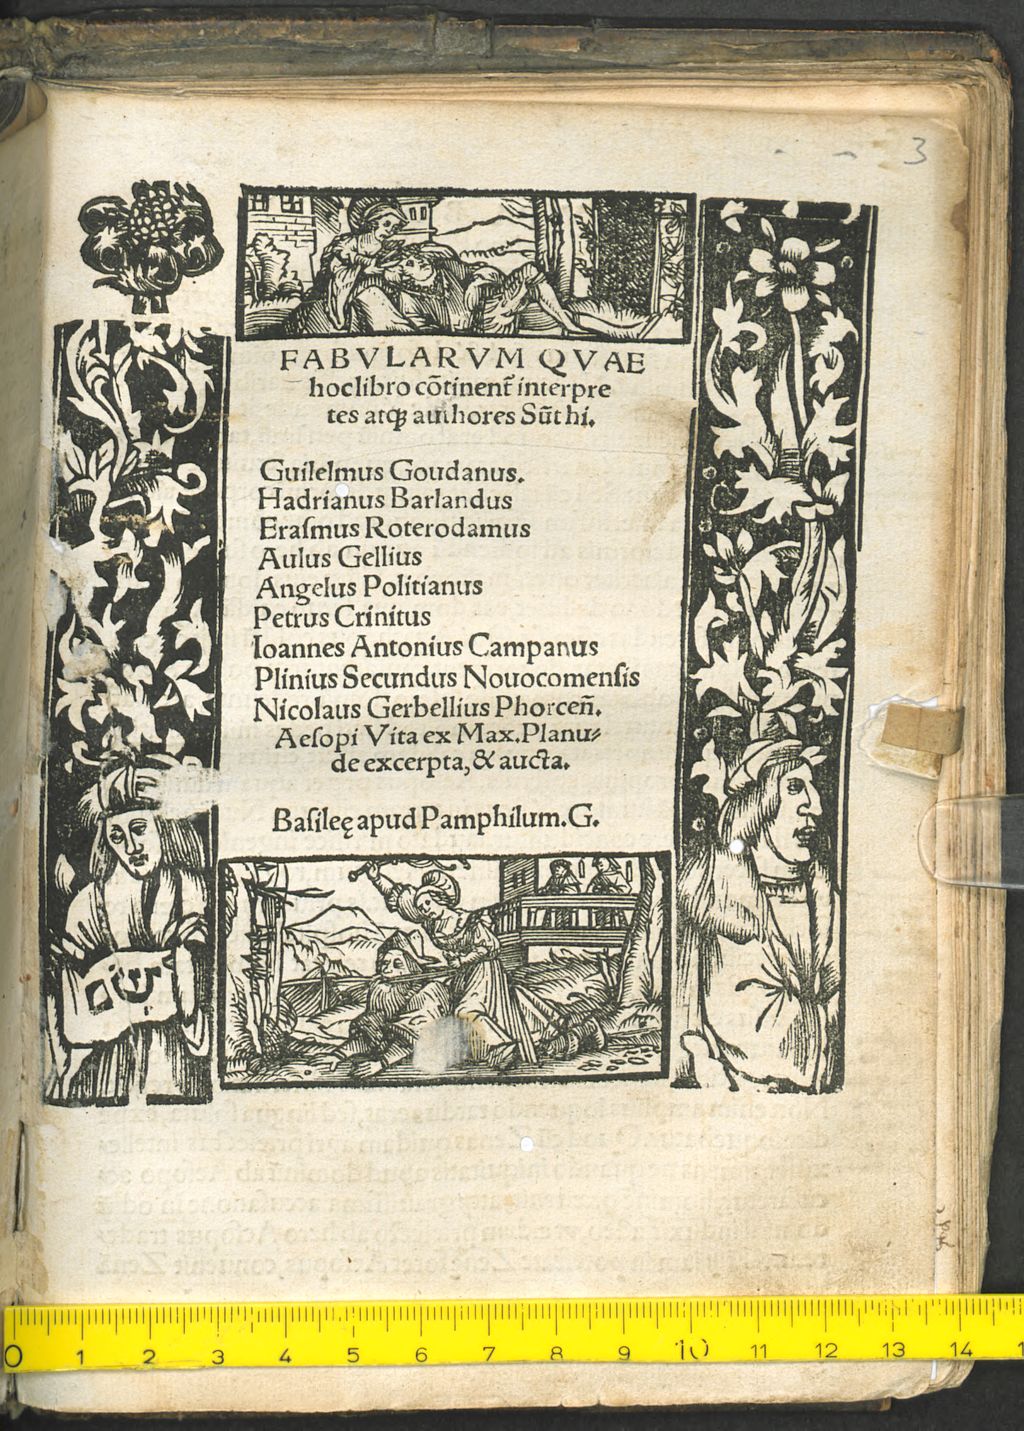 3
FABVLARVM QVAE
hoclibro cōtinent̃ interpre
tes atqꝫ authores Sūt hi.
Guilelmus Goudanus.
Hadrianus Barlandus
Eraſmus Roterodamus
Aulus Gellius
Angelus Politianus
Petrus Crinitus
Ioannes Antonius Campanus
Plinius Secundus Nouocomenſis
Nicolaus Gerbellius Phorceñ.
Aeſopi Vita ex Max. Planu⸗
de excerpta, & aucta.
Baſileę apud Pamphilum. G.
שם
0 1 2 3 4 5 6 7 8 9 10 11 12 13 14